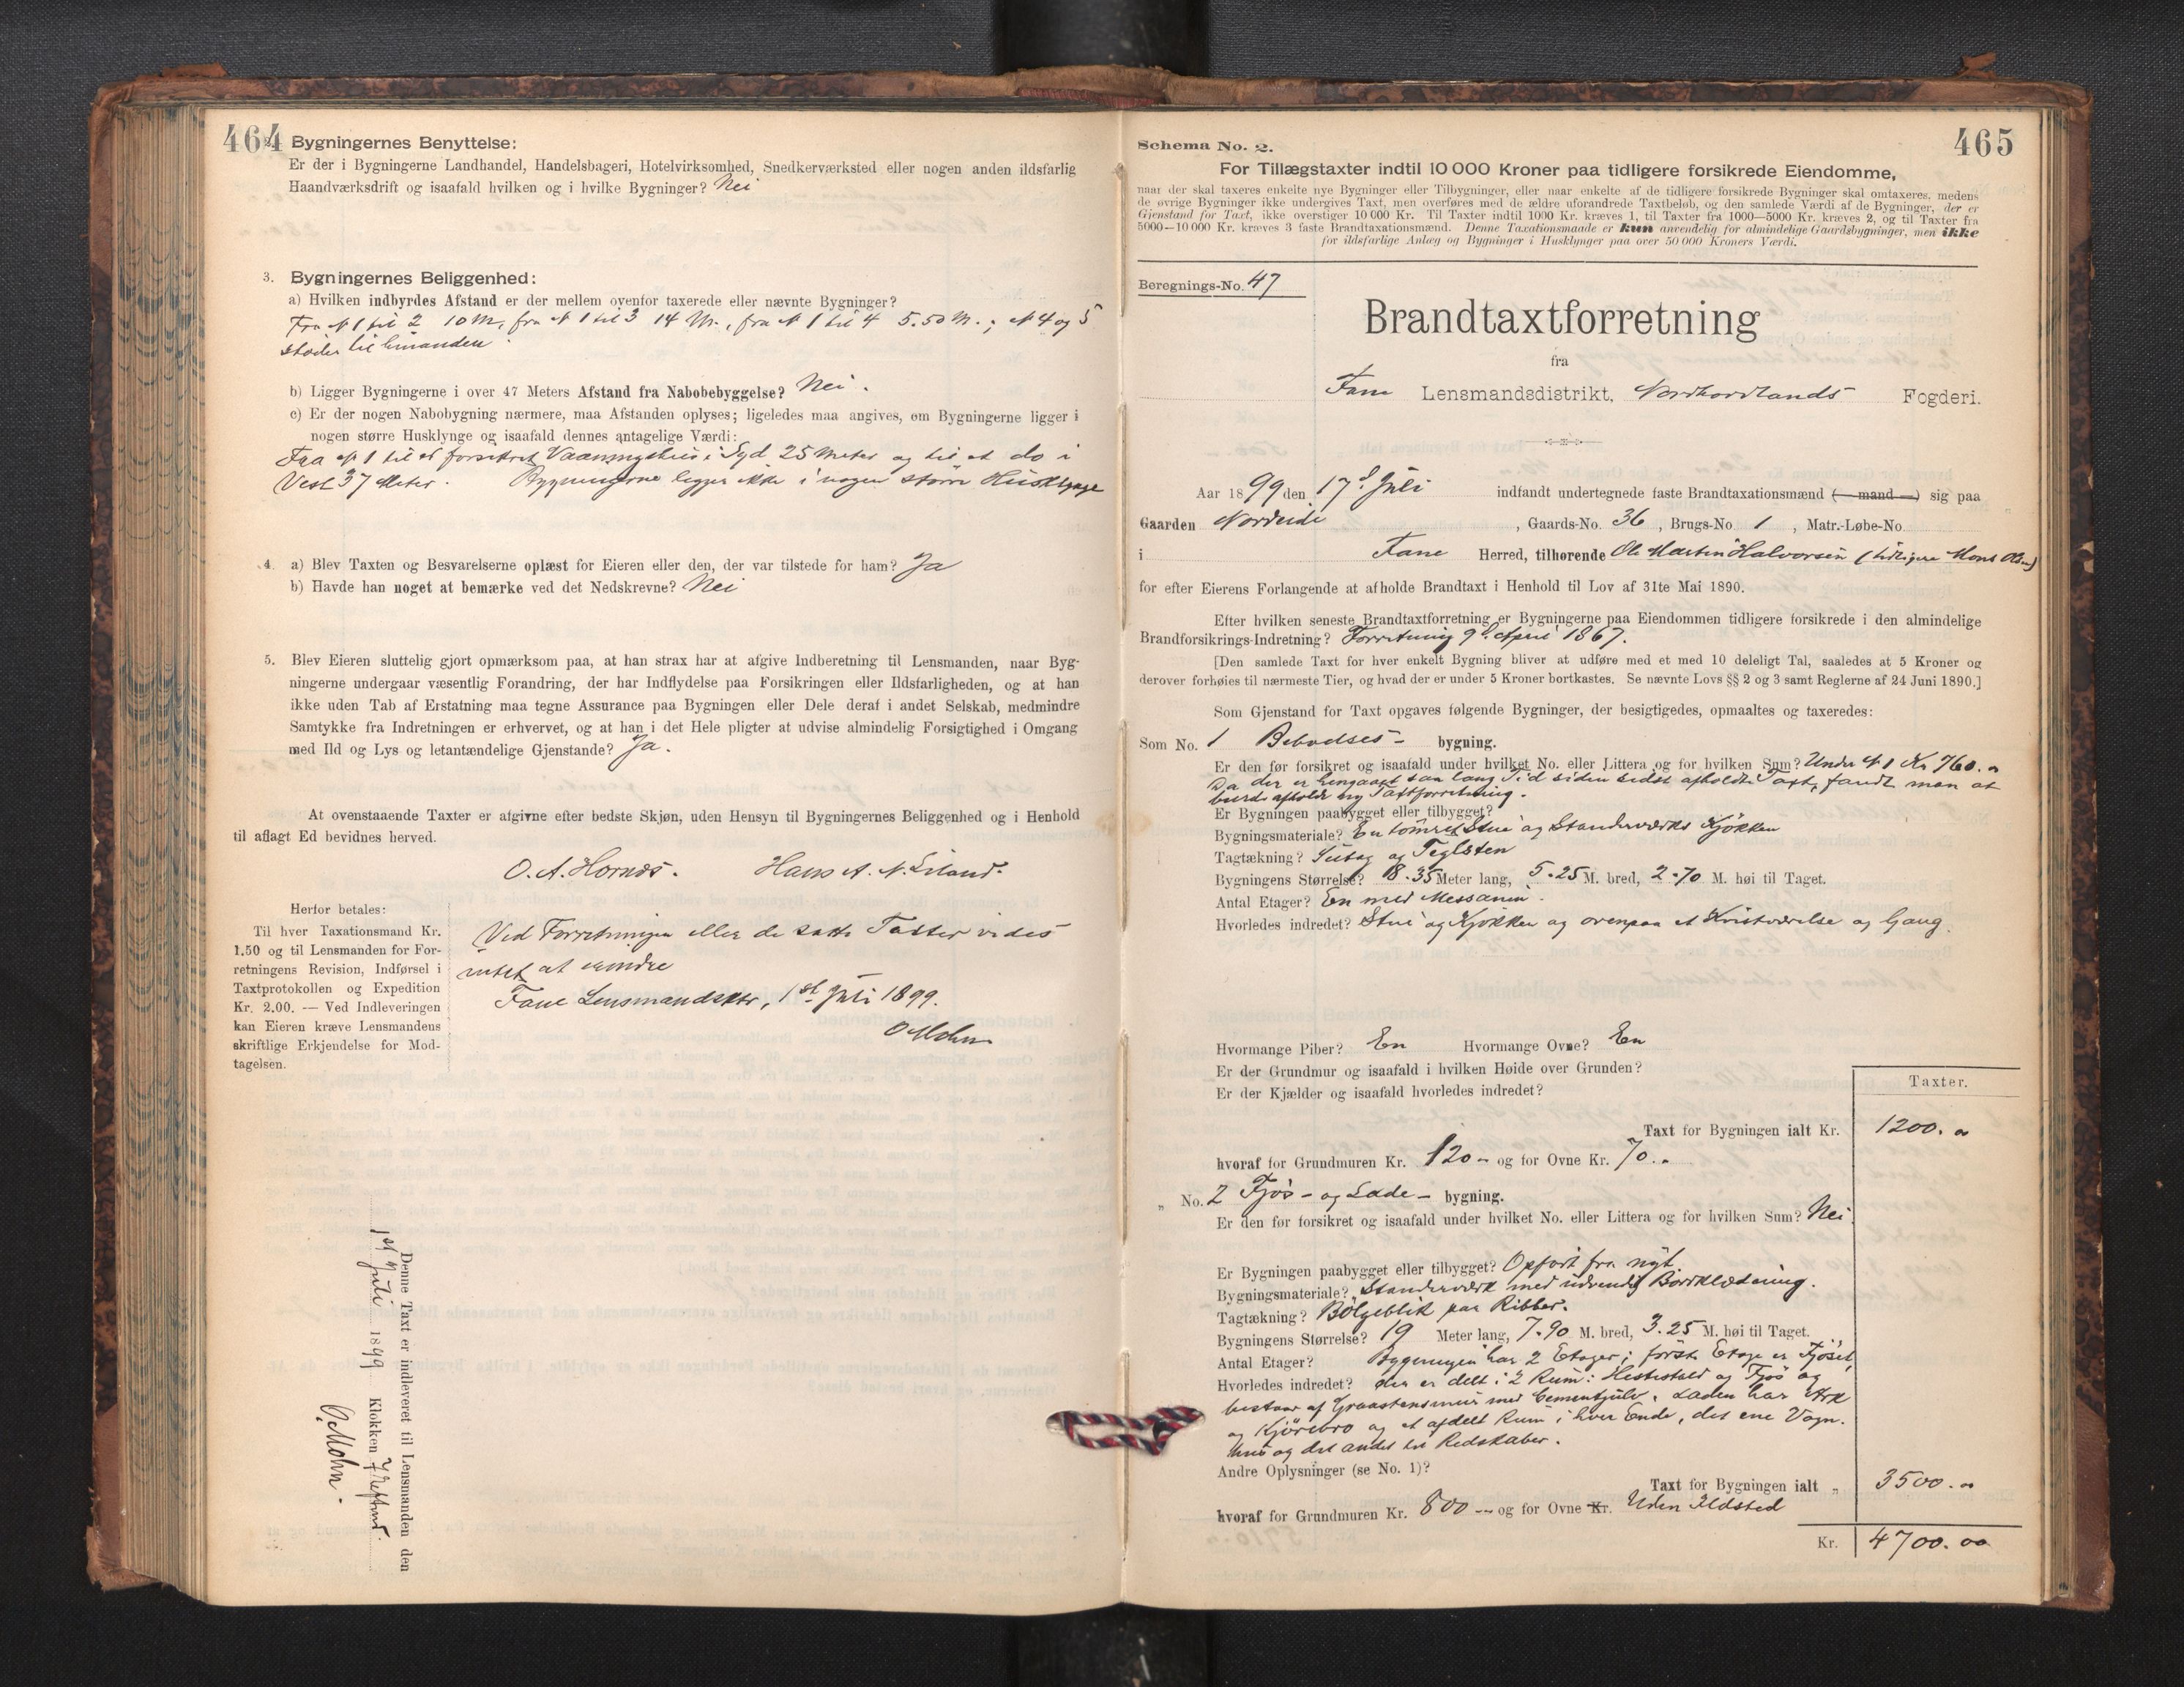 464
2. Bygningernes Benyttelse:
Er der i Bygningerne Landhandel, Handelsbageri, Hotelvirksomhed, Snedkerværksted eller nogen anden ildsfarlig
Haandværksdrift og isaafald hvilken og i hvilke Bygninger? Nei
3. Bygningernes Beliggenhed:
a) Hvilken indbyrdes Afstand er der mellem ovenfor taxerede eller nævnte Bygninger?
Fra № 1 til 2 10 M, fra № 1 til 3 14 M., fra № 1 til 4 5.50 M.; № 4 og 5
støder til hinanden.
b) Ligger Bygningerne i over 47 Meters Afstand fra Nabobebyggelse? Nei.
c) Er der nogen Nabobygning nærmere, maa Afstanden oplyses; ligeledes maa angives, om Bygningerne ligger i
nogen større Husklynge og isaafald dennes antagelige Værdi:
Fra № 1 til et forsikret Vaaningshus i Syd 25 Meter og til et do i
Vest 37 Meter. Bygningerne ligger ikke i nogen større Husklynge
4. a) Blev Taxten og Besvarelserne oplæst for Eieren eller den, der var tilstede for ham? Ja
b) Havde han noget at bemærke ved det Nedskrevne? Nei
5. Blev Eieren sluttelig gjort opmærksom paa, at han strax har at afgive Indberetning til Lensmanden, naar Byg-
ningerne undergaar væsentlig Forandring, der har Indflydelse paa Forsikringen eller Ildsfarligheden, og at han
ikke uden Tab af Erstatning maa tegne Assurance paa Bygningen eller Dele deraf i andet Selskab, medmindre
Samtykke fra Indretningen er erhvervet, og at han i det Hele pligter at udvise almindelig Forsigtighed i Omgang
med Ild og Lys og letantændelige Gjenstande? Ja.
At ovenstaaende Taxter er afgivne efter bedste Skjøn, uden Hensyn til Bygningernes Beliggenhed og i Henhold
til aflagt Ed bevidnes herved.
O. A. Hornæs. Hans A. N. Liland.
Herfor betales:
Til hver Taxationsmand Kr.
1.50 og til Lensmanden for For-
retningens Revision, Indførsel i
Taxtprotokollen og Expedition
Kr. 2.00. — Ved Indleveringen
kan Eieren kræve Lensmandens
skriftlige Erkjendelse for Mod-
tagelsen.
Ved Forretningen eller de satte Taxter vides
intet at erindre
Fane Lensmandsktr, 1st Juli 1899.
O Mohn
Denne Taxt er indleveret til Lensmanden den
1st Juli 1899 Klokken 7 Efterm.
O. Mohn.
Schema No. 2.
465
For Tillægstaxter indtil 10 000 Kroner paa tidligere forsikrede Eiendomme,
naar der skal taxeres enkelte nye Bygninger eller Tilbygninger, eller naar enkelte af de tidligere forsikrede Bygninger skal omtaxeres, medens
de øvrige Bygninger ikke undergives Taxt, men overføres med de ældre uforandrede Taxtbeløb, og den samlede Værdi af de Bygninger, der er
Gjenstand for Taxt, ikke overstiger 10 000 Kr. Til Taxter indtil 1000 Kr. kræves 1, til Taxter fra 1000—5000 Kr. kræves 2, og til Taxter fra
5000—10 000 Kr. kræves 3 faste Brandtaxationsmænd. Denne Taxationsmaade er kun anvendelig for almindelige Gaardsbygninger, men ikke
for ildsfarlige Anlæg og Bygninger i Husklynger paa over 50 000 Kroners Værdi.
Beregnings-No. 47
Brandtaxtforretning
fra
Fane Lensmandsdistrikt, Nordhordlands Fogderi.
Aar 1899 den 17d Juli indfandt undertegnede faste Brandtaxationsmænd (—mand—) sig paa
Gaarden Nordeide, Gaards-No. 36, Brugs-No 1, Matr.-Løbe-No.
i Fane Herred, tilhørende Ole Martin Halvorsen (tidligere Mons Olsen)
for efter Eierens Forlangende at afholde Brandtaxt i Henhold til Lov af 31te Mai 1890.
Efter hvilken seneste Brandtaxtforretning er Bygningerne paa Eiendommen tidligere forsikrede i den almindelige
Brandforsikrings-Indretning? Forretning 9d April 1867.
[Den samlede Taxt for hver enkelt Bygning bliver at udføre med et med 10 deleligt Tal, saaledes at 5 Kroner og
derover forhøies til nærmeste Tier, og hvad der er under 5 Kroner bortkastes. Se nævnte Lovs §§ 2 og 3 samt Reglerne af 24 Juni 1890.]
Som Gjenstand for Taxt opgaves følgende Bygninger, der besigtigedes, opmaaltes og taxeredes:
Som No. 1 Beboelses- bygning.
Er den før forsikret og isaafald under hvilket No. eller Littera og for hvilken Sum? Under № 1 Kr 760.
Da der er hengaaet saa lang Tid siden sidst afholdte Taxt, fandt man at
burde afholde ny Taxtforretning.
Er Bygningen paabygget eller tilbygget?
Bygningsmateriale? En tømret Stue og Standerværks Kjøkken
Tagtækning? Sutag og Teglsten
Bygningens Størrelse? 8.35 Meter lang, 5.25 M. bred, 2.70 M. høi til Taget.
Antal Etager? En med Messanin.
Hvorledes indredet? Stue og Kjøkken og ovenpaa et Kvistværelse og Gang.
Hvormange Piber? En Hvormange Ovne? En
Er der Grundmur og isaafald i hvilken Høide over Grunden?
Er der Kjælder og isaafald hvorledes indredet?
Taxter.
Taxt for Bygningen ialt Kr. 1200.
hvoraf for Grundmuren Kr. 120 - og for Ovne Kr. 70.
„ No. 2 Fjøs- og Lade- bygning.
Er den før forsikret og isaafald under hvilket No. eller Littera og for hvilken Sum? Nei.
Er Bygningen paabygget eller tilbygget? Opført fra nyt.
Bygningsmateriale? Standerværk med udvendig Bordklædning.
Tagtækning? Bølgeblik paa Ribber.
Bygningens Størrelse? 19 Meter lang, 7.90 M. bred, 3.25 M. høi til Taget.
Antal Etager? Bygningen har 2 Etager; første Etage er Fjøset,
Hvorledes indredet? der er delt i 2 Rum: Hestestald og Fjøs og
bestaar af Graastensmur med Cementgulv. Laden har
og Kjørebro og et afdelt Rum i hver Ende, det ene Vogn-
hus og det andet til Redskaber.
Andre Oplysninger (se No. 1)?
Taxt for Bygningen ialt „ 3500.
hvoraf for Grundmuren Kr. 800 -- og for Ovne Kr. Uden Ildsted
Kr. 4700.00